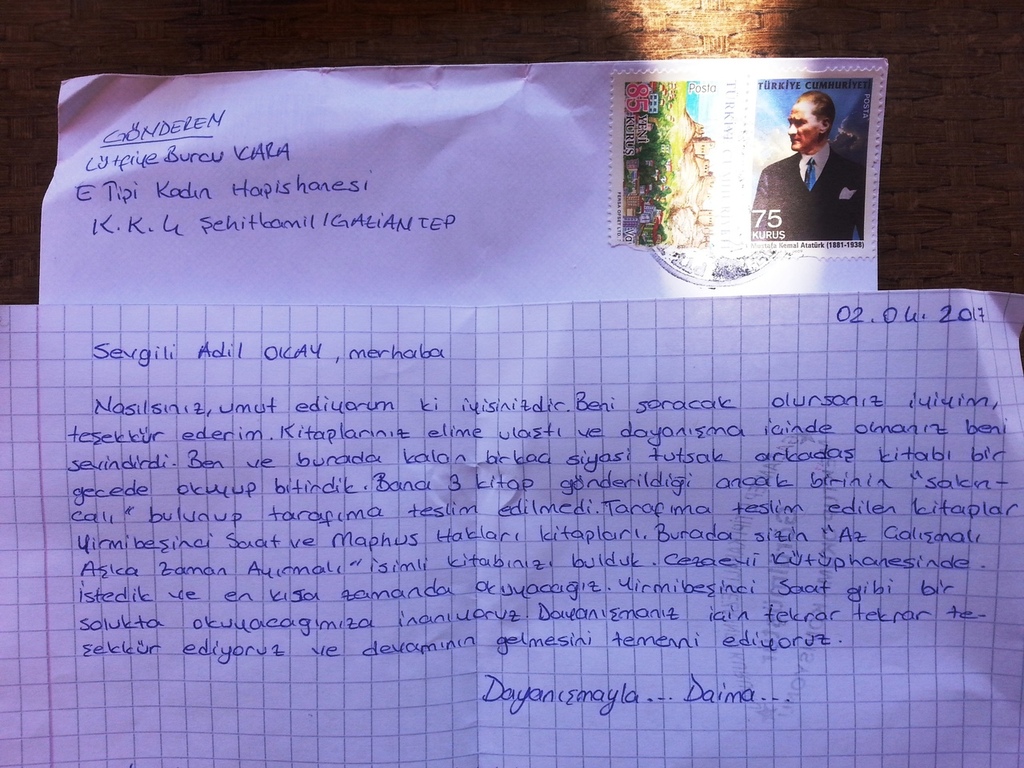 GÖNDEREN
Lütfiye Burcu KARA
E Tipi Kadın Hapishanesi
K.K.4 Şehitkamil/GAZİANTEP
Posta
85 KURUŞ
TÜRKİYE CUMHURİYETİ
POSTA
75
KURUŞ
Mustafa Kemal Atatürk (1881-1938)
02.04.2017
Sevgili Adil OKAY, merhaba
Nasılsınız, umut ediyorum ki iyisinizdir. Beni soracak olursanız iyiyim,
teşekkür ederim. Kitaplarınız elime ulaştı ve dayanışma içinde olmanız beni
sevindirdi. Ben ve burada kalan birkaç siyasi tutsak arkadaş kitabı bir
gecede okuyup bitirdik. Bana 3 kitap gönderildiği ancak birinin "sakın-
calı" bulunup tarafıma teslim edilmedi. Tarafıma teslim edilen kitaplar
Yirmibeşinci Saat ve Maphus Hakları kitapları. Burada sizin "Az Çalışmalı
Aşka Zaman Ayırmalı" isimli kitabınızı bulduk. Cezaevi Kütüphanesinde.
İstedik ve en kısa zamanda okuyacağız. Yirmibeşinci Saat gibi bir
solukta okuyacağımıza inanıyoruz. Dayanışmanız için tekrar tekrar te-
şekkür ediyoruz ve devamının gelmesini temenni ediyoruz.
Dayanışmayla... Daima...